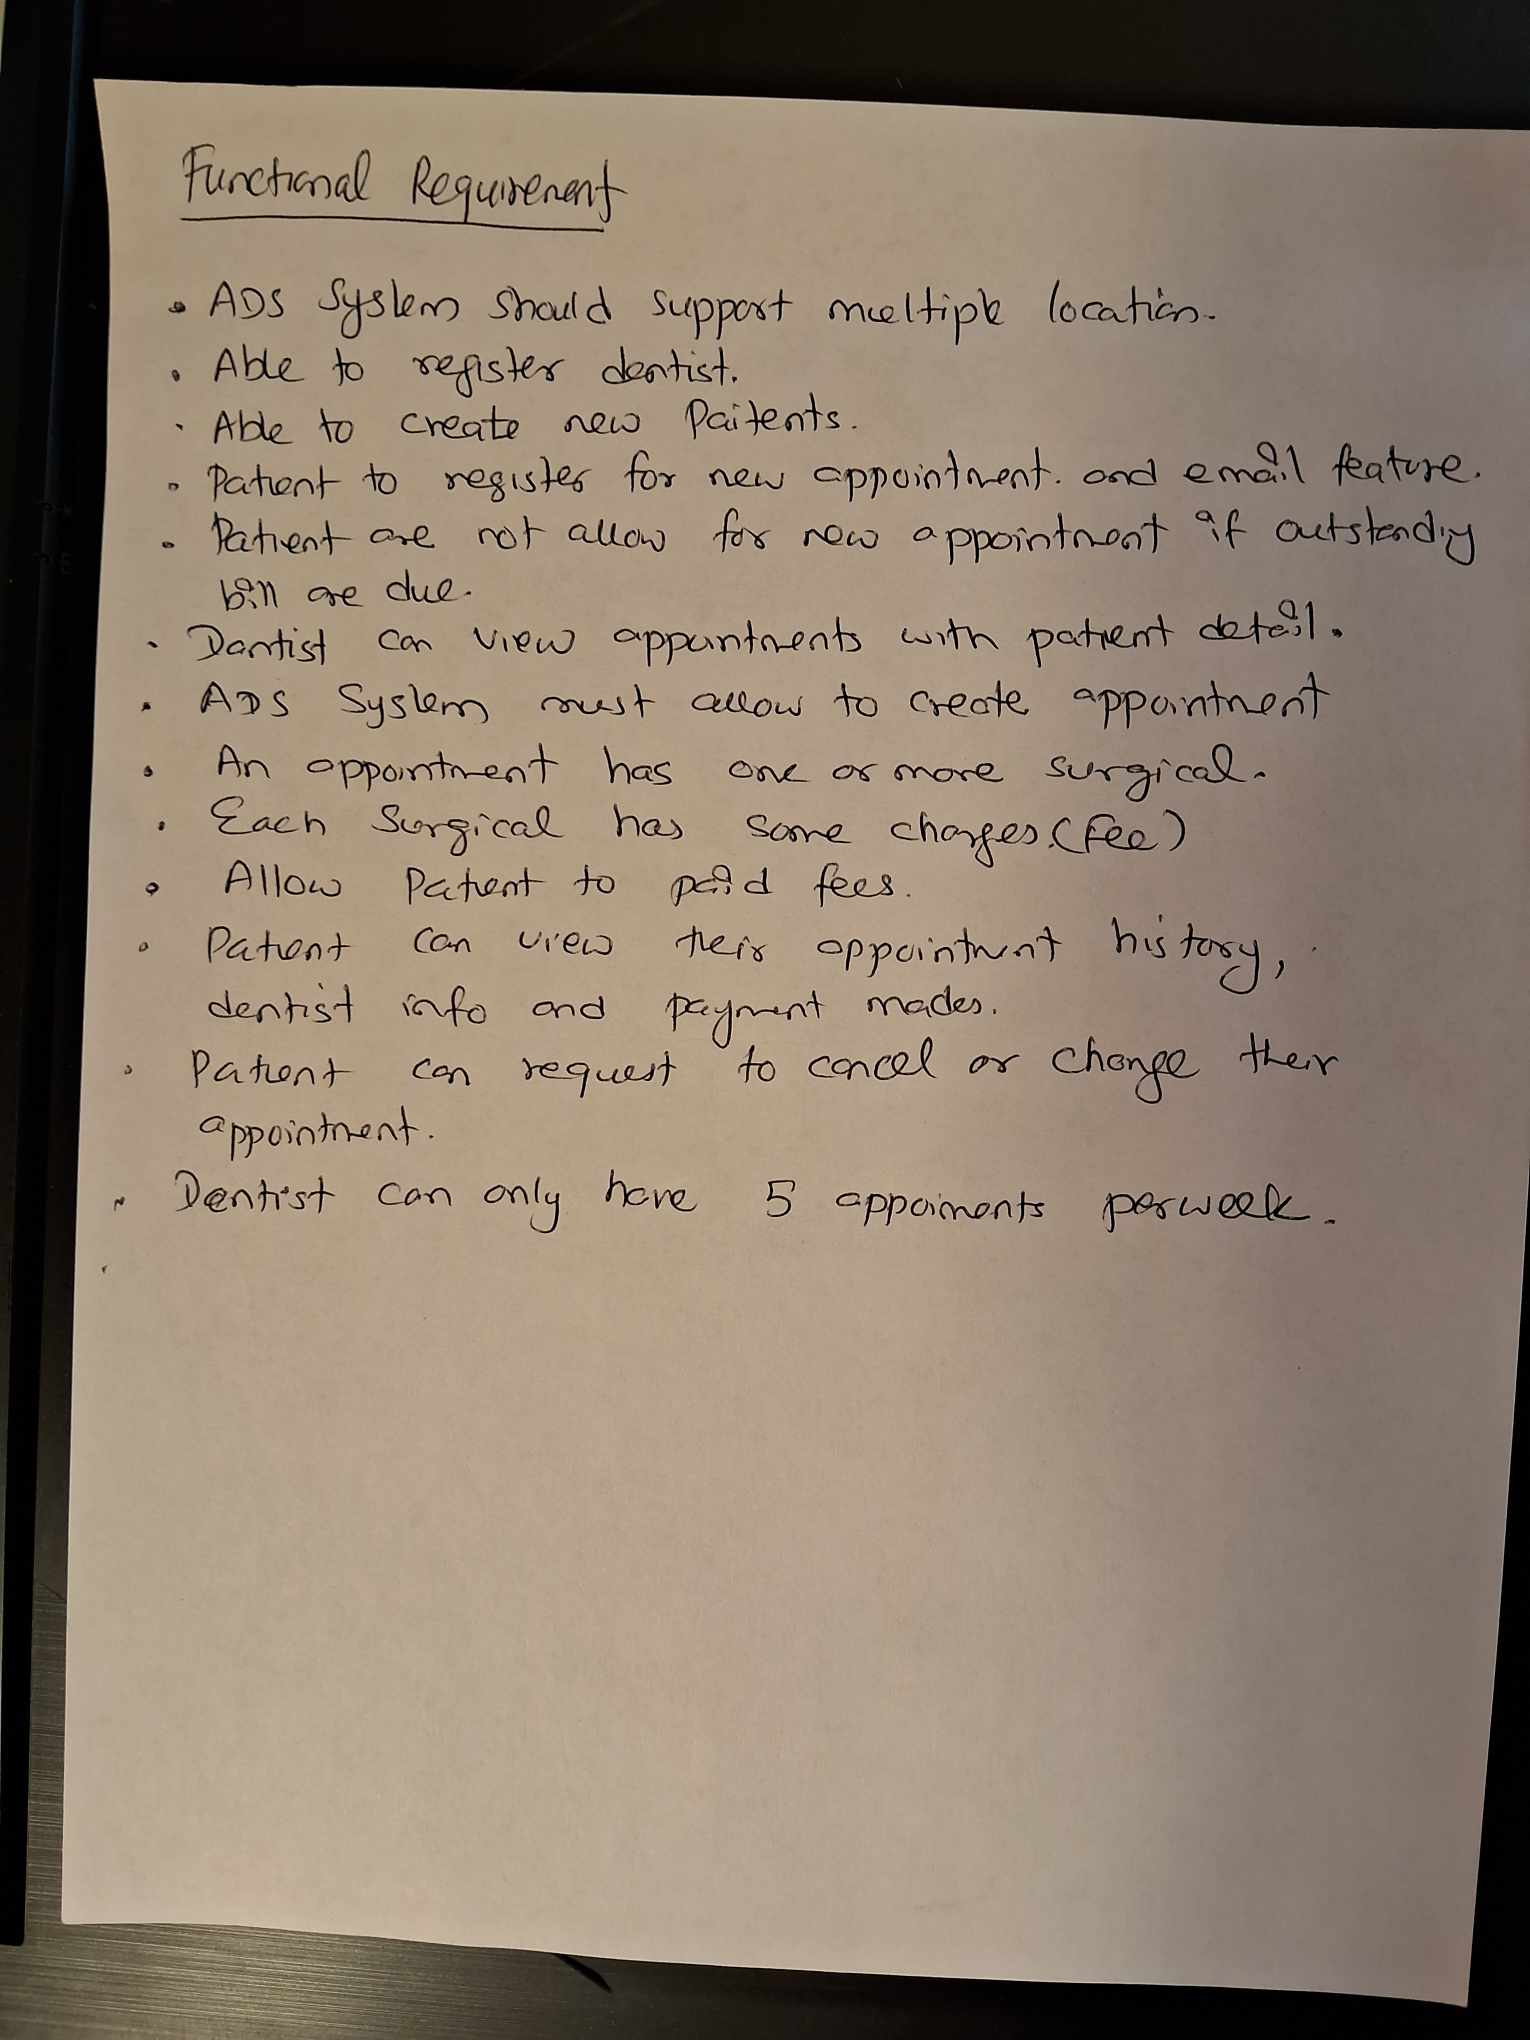 Functional Requirement
• ADS System should support multiple location.
• Able to register dentist.
• Able to create new Paitents.
• Patient to register for new appointment. and email feature.
• Patient are not allow for new appointment if outstanding
bill are due.
• Dentist can view appointments with patient detail.
• ADS System must allow to create appointment
• An appointment has one or more surgical.
• Each Surgical has some charges.(Fee)
• Allow Patient to paid fees.
• Patient can view their appointment history,
dentist info and payment mades.
• Patient can request to cancel or change their
appointment.
• Dentist can only have 5 appoiments per week.